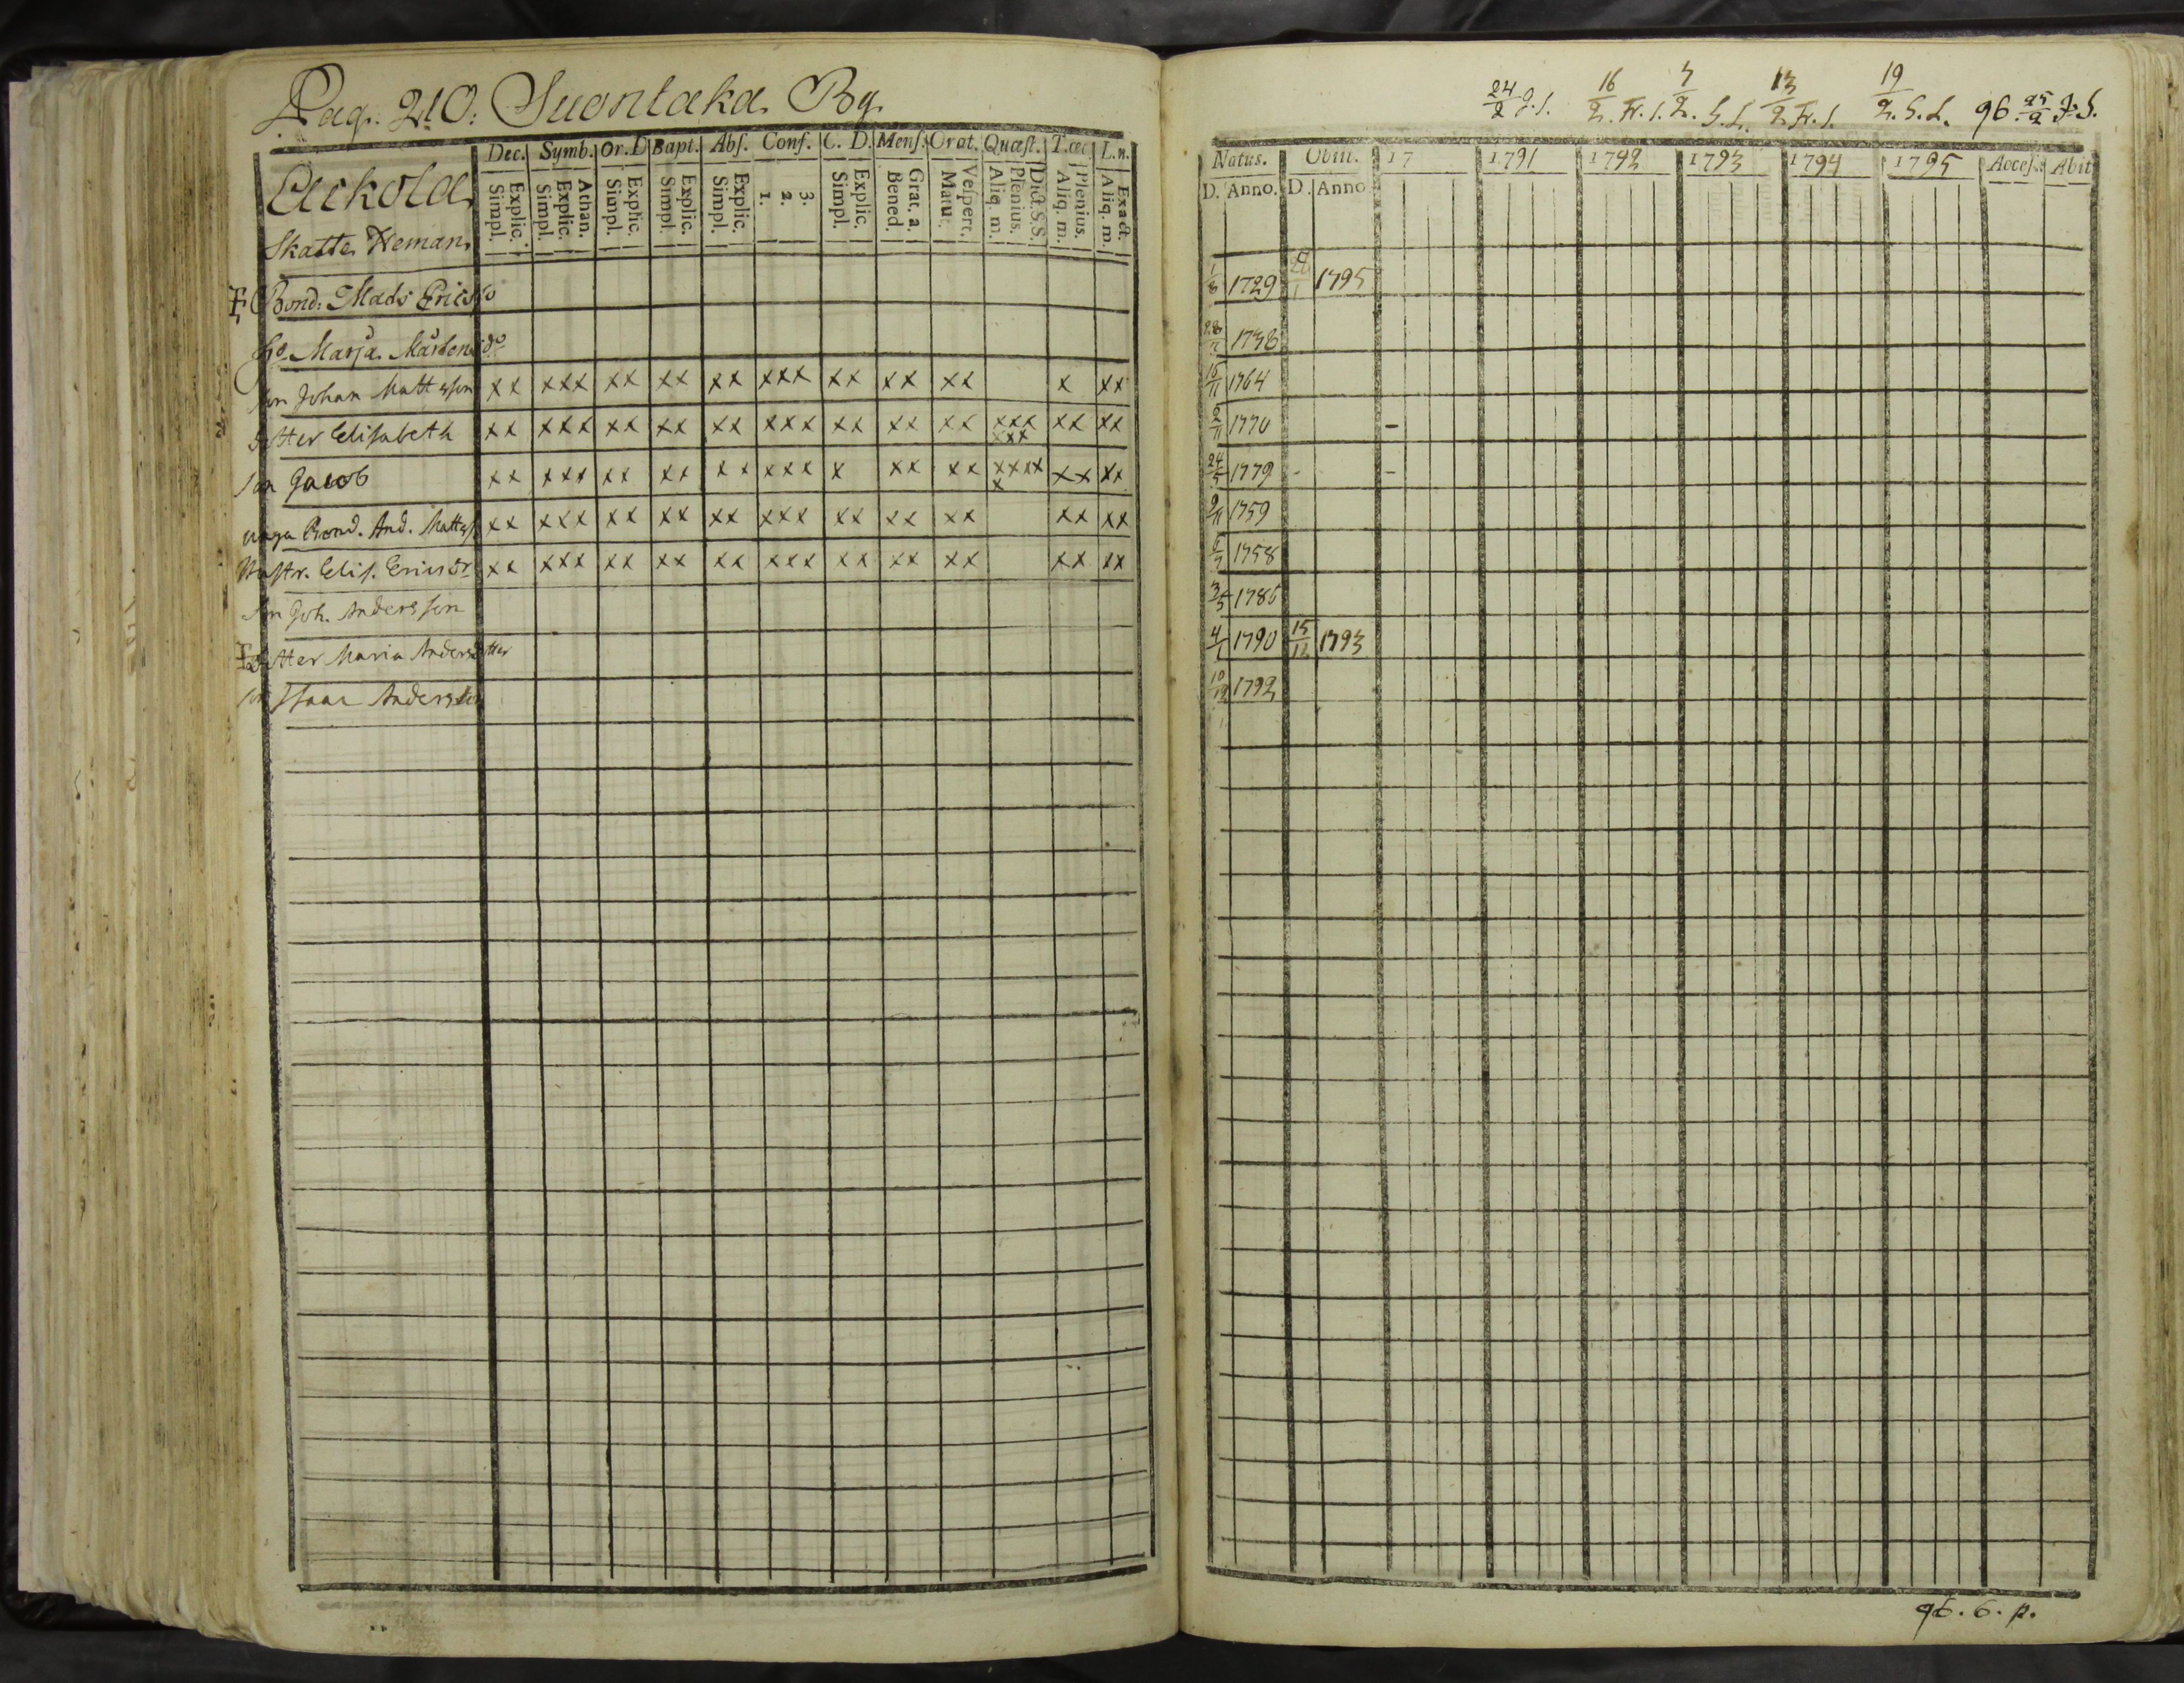 Pag. 210. Suontaka By.
Dec. Symb. Or. D Bapt. Abs. Conf. C. D. Mens. Orat. Quæst. T. œc. L. n.
Simpl. Explic. Simpl. Explic. Athan. Simpl. Explic. Simpl. Explic. Simpl. Explic. 1. 2. 3. Simpl. Explic. Bened. Grat. a. Matut. Vespert. Aliq. m. Plenius. Dict. S.S. Aliq. m. Plenius. Aliq. m. Exact.
Skatte Heman
Bond: Mads Ericss:
Hu. Marja. Mårtens do
Son Johan Mattsson xx xxx xx xx xx xxx xx xx xx x xx
Dotter Elisabeth xx xxx xx xx xx xxx xx xx xx xxx xxx xx xx
Son Jacob xx xxx xx xx xx xxx x xx xx xxxx x xx xx
unga Bond. And. Mattss xx xxx xx xx xx xxx xx xx xx xx xx
Hustr. Elis. Ericsdr xx xxx xx xx xx xxx xx xx xx xx xx
Son Joh. Andersson
Dotter Maria Andersdotter
Son Isaac Andersson
24/2 J.S. 16/2. H.S. 7/2. S.L. 13/2 H.S. 19/2. S.L. 96. 25/2 J.S.
Natus. Obiit. 17 1791 1792 1793 1794 1795 Acces. Abit
D. Anno. D. Anno
1/8 1729 1795
1738
15/11 1764
6/11 1770 -
24/5 1779 - -
9/11 1759
6/7 1758
3/5 1786
4/1 1790 15/12 1793
10/12 1792
96. 6. p.